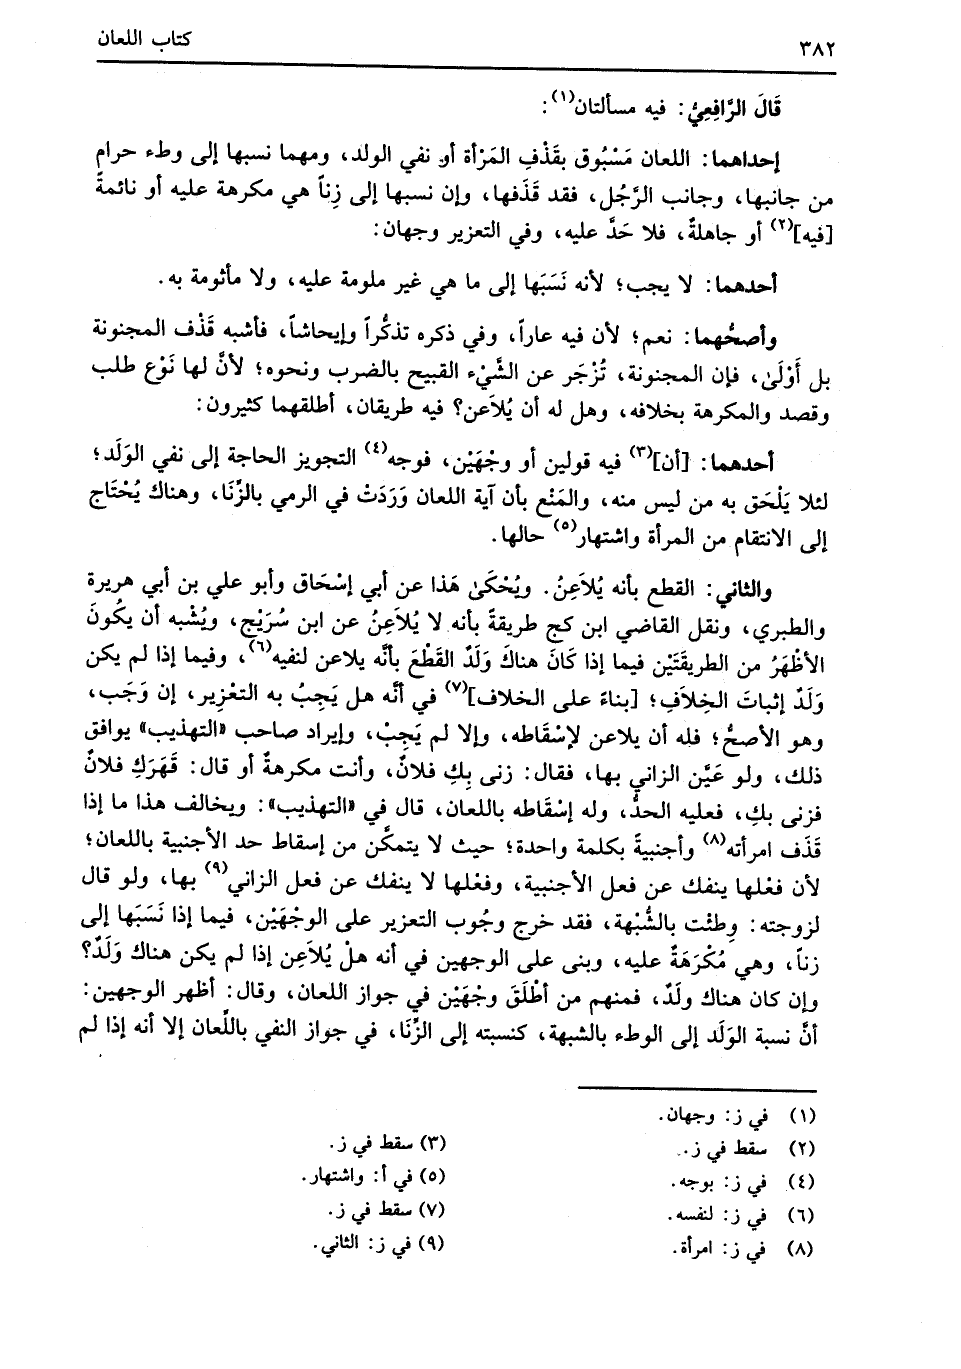 ٣٨٢
كتاب اللعان
قَالَ الرَّافِعِيُّ: فيه مسألتان(١):
إحداهما: اللعان مَسْبُوق بقَذْفِ المَرْأة أو نفي الولد، ومهما نسبها إلى وطء حرام
من جانبها، وجانب الرَّجُل، فقد قَذَفها، وإن نسبها إلى زِناً هي مكرهة عليه أو نائمةً
[فيه](٢) أو جاهلةٌ، فلا حَدَّ عليه، وفي التعزير وجهان:
أحدهما: لا يجب؛ لأنه نَسَبَها إلى ما هي غير ملومة عليه، ولا مأثومة به.
وأصحُّهما: نعم؛ لأن فيه عاراً، وفي ذكره تذكُّراً وإيحاشاً، فأشبه قَذْف المجنونة
بل أَوْلَىٰ، فإن المجنونة، تُزْجَر عن الشَّيْء القبيح بالضرب ونحوه؛ لأنَّ لها نَوْع طلب
وقصد والمكرهة بخلافه، وهل له أن يُلاَعن؟ فيه طريقان، أطلقهما كثيرون:
أحدهما: [أن](٣) فيه قولين أو وجْهَيْن، فوجه(٤) التجويز الحاجة إلى نفي الوَلَد؛
لئلا يَلْحَق به من ليس منه، والمَنْع بأن آية اللعان وَرَدَتْ في الرمي بالزِّنَا، وهناك يُحْتَاج
إلى الانتقام من المرأة واشتهار(٥) حالها.
والثاني: القطع بأنه يُلاَعِنُ. ويُحْكَىٰ هَذا عن أبي إسْحَاق وأبو علي بن أبي هريرة
والطبري، ونقل القاضي ابن كج طريقةً بأنه لا يُلاَعِنُ عن ابن سُرَيْج، ويُشْبه أن يكُونَ
الأظْهَرُ من الطريقَتَيْن فيما إذا كَانَ هناكَ وَلَدٌ القَطْعَ بأنَّه يلاعن لنفيه(٦)، وفيما إذا لم يكن
وَلَدٌ إثباتَ الخِلاَفِ؛ [بناءً على الخلاف](٧) في أنَّه هل يَجِبُ به التعْزِير، إن وَجَب،
وهو الأصحُّ؛ فله أن يلاعن لإسْقَاطه، وإلا لم يَجِبْ، وإيراد صاحب «التهذيب» يوافق
ذلك، ولو عَيَّن الزاني بها، فقال: زنى بِكِ فلانٌ، وأنت مكرهةٌ أو قال: قَهَرَكِ فلانٌ
فزنى بكِ، فعليه الحدُّ، وله إسْقَاطه باللعان، قال في «التهذيب»: ويخالف هذا ما إذا
قَذَف امرأته(٨) وأجنبيةً بكلمة واحدة؛ حيث لا يتمكَّن من إسقاط حد الأجنبية باللعان؛
لأن فعْلها ينفك عن فعل الأجنبية، وفعْلها لا ينفك عن فعل الزاني(٩) بها، ولو قال
لزوجته: وطئت بالشُّبْهة، فقد خرج وجُوب التعزير على الوجْهَيْن، فيما إذا نَسَبَها إلى
زناً، وهي مُكْرَهَةٌ عليه، وبنى على الوجهين في أنه هلْ يُلاَعِن إذا لم يكن هناك وَلَدٌ؟
وإن كان هناك ولَدٌ، فمنهم من أطْلَقَ وجْهَيْن في جواز اللعان، وقال: أظهر الوجهين:
أنَّ نسبة الوَلَد إلى الوطء بالشبهة، كنسبته إلى الزِّنَا، في جواز النفي باللِّعان إلا أنه إذا لم
(١) في ز: وجهان.
(٢) سقط في ز.
(٣) سقط في ز.
(٤) في ز: بوجه.
(٥) في أ: واشتهار.
(٦) في ز: لنفسه.
(٧) سقط في ز.
(٨) في ز: امرأة.
(٩) في ز: الثاني.